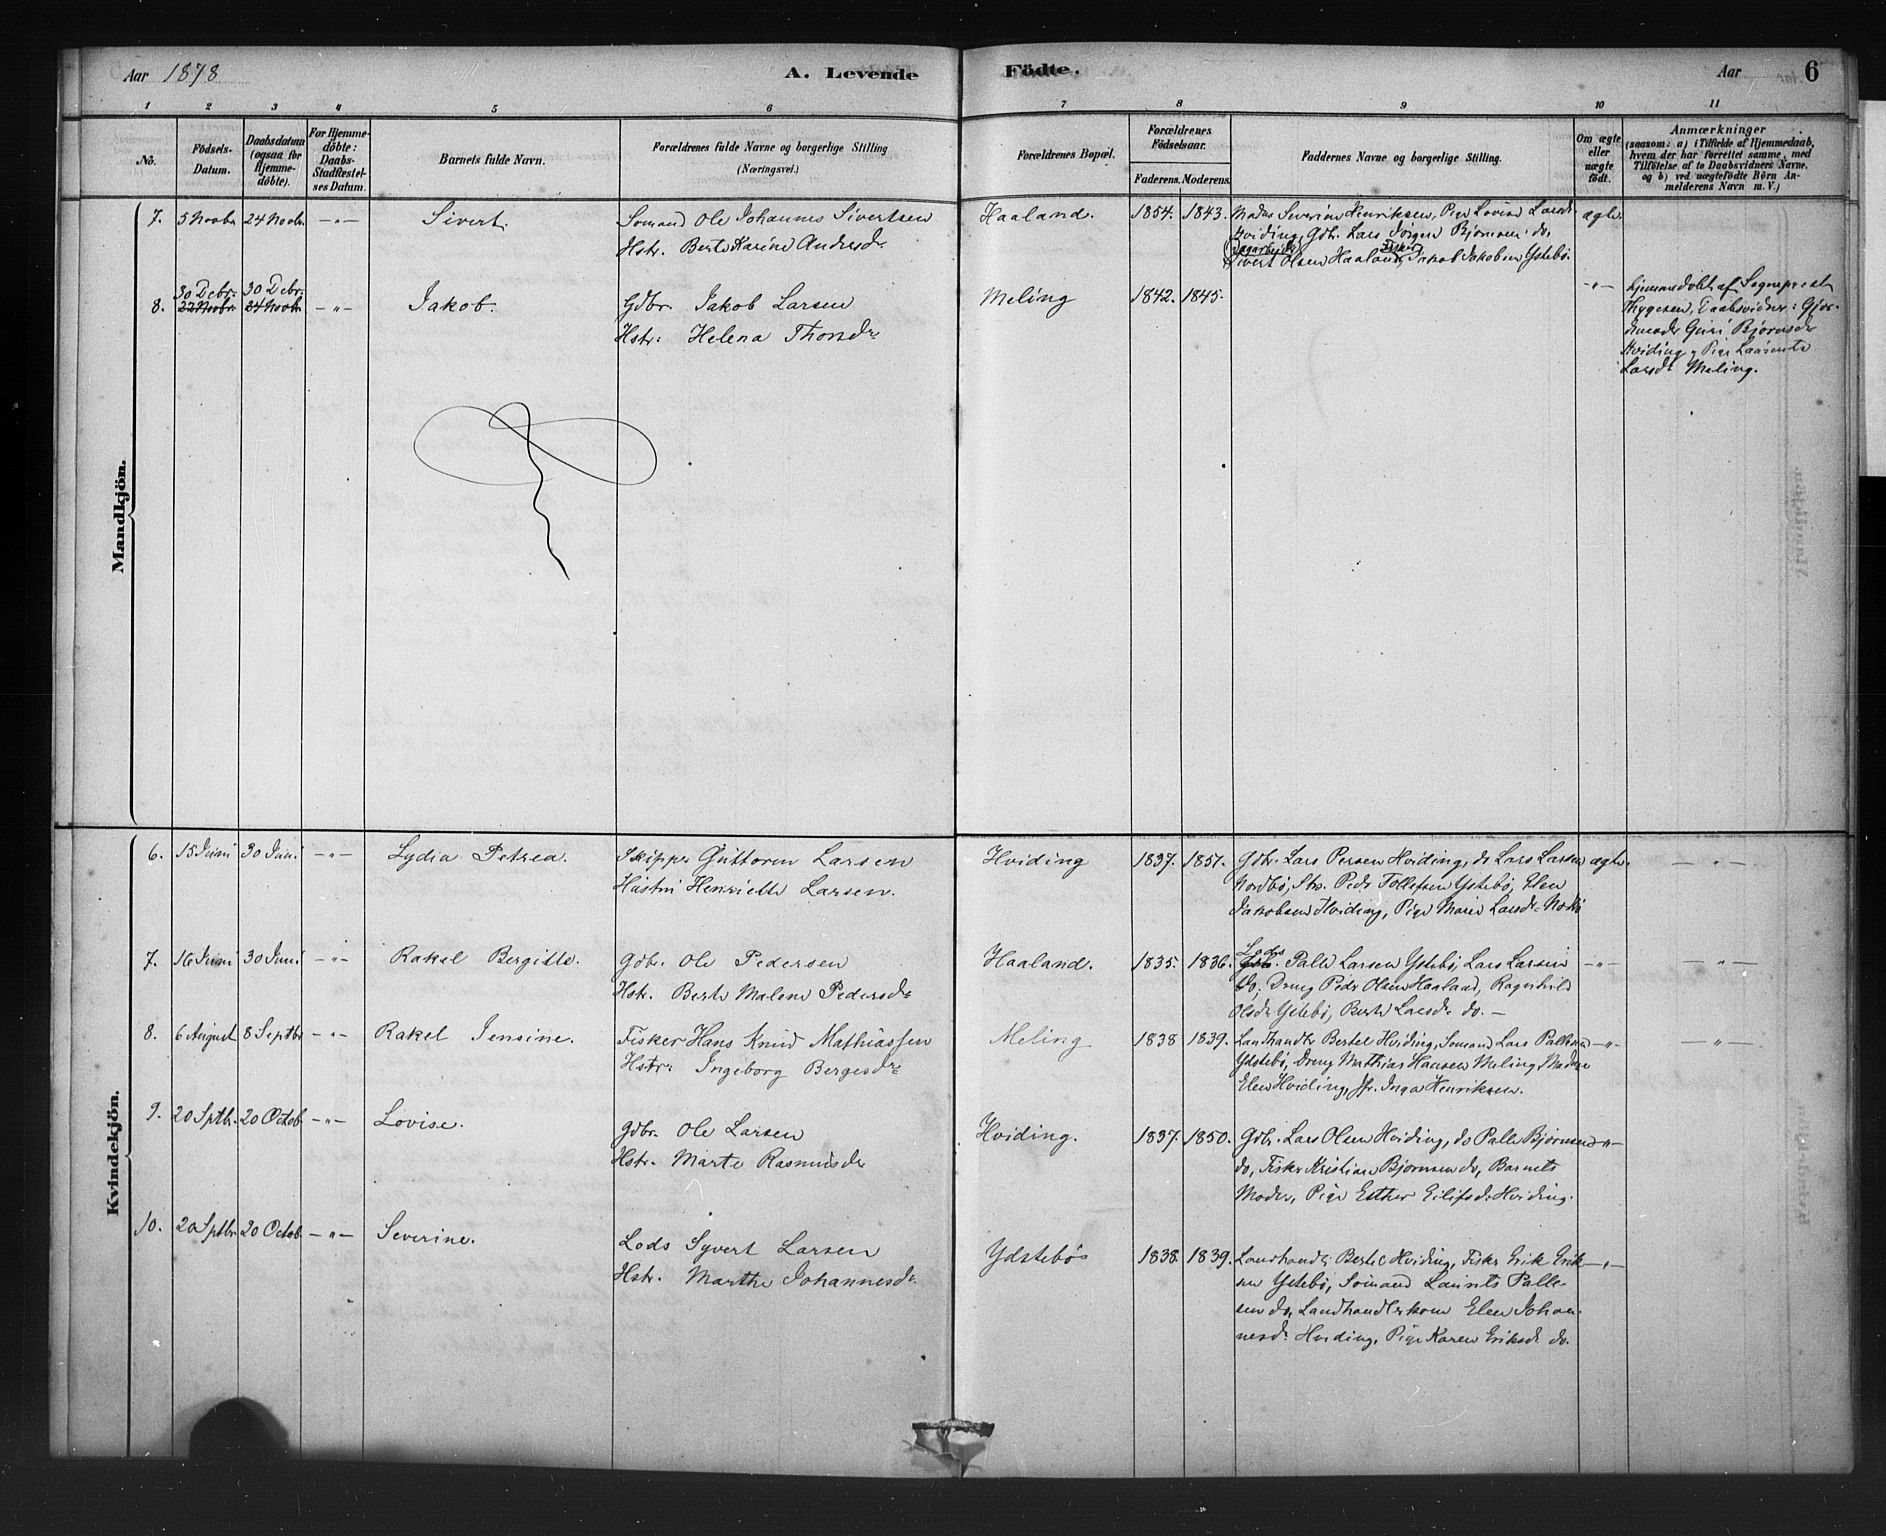 Aar 1878
A. Levende
Födte.
Aar
6
1 2 3 4 5 6 7 8 9 10 11
No.
Födsels-
Datum.
Daabsdatum
(ogsaa for
Hjemme-
döbte).
For Hjemme-
döbte:
Daabs-
Stadfæstel-
ses Datum.
Barnets fulde Navn.
Forældrenes fulde Navne og borgerlige Stilling
(Næringsvei.)
Forældrenes Bopæl.
Forældrenes
Födselsaar.
Faderens. Moderens.
Faddernes Navne og borgerlige Stilling.
Om ægte
eller
uægte
födt.
Anmærkninger
(saasom: a) i Tilfælde af Hjemmedaab,
hvem der har forrettet samme, med
Tilföielse af to Daabsvidners Navne,
og b) ved uægtefödte Börn An-
melderens Navn m. V.)
Mandkjön.
7. 5 Novbr 24 Novbr. —"— Sivert.
Sömand Ole Johannes Sivertsen
Hstr. Berte Karine Andersdr
Haaland. 1854. 1843.
Madas Severine Henriksen, Pige Lovise Larsdr
Hviding, Gdbr. Lars Jörgen Bjørnsen do,
Dagarbeider Fisker
Sivert Olsen Haaland, Jakob Jakobsen Ystebö.
ægte.
30 Debr. 30 Debr.
8. 22 Novbr. 24 Novbr. —"— Jakob.
Gdbr. Jakob Larsen
Hstr: Helena Thorsdr
Meling 1842. 1845.
—"—
hjemmedöbt af Sogneprest
Thygesen, Daabsvidner: Gjor-
demoder Guri Bjørnsdr
Hviding, Pige Laurentse
Larsdr Meling.
Kvindekjön.
6. 15 Juni 30 Juni —"— Lydia Petrea.
Skipper Guttorm Larsen
Hustru Henriette Larsen.
Hviding 1837. 1857.
Gdbr. Lars Persen Hviding, do Lars Larsen
Nordbö, Str. Peder Tollefsen Ystebö, Elen
Jakobsen Hviding, Pige Marie Larsdr Nordbö
ægte. —"—
7. 16 Juni 30 Juni —"— Rakel Bergitte.
Gdbr. Ole Pedersen
Hstr. Berte Malene Pedersdr
Haaland. 1835. 1836.
Lods
Gdbr. Palle Larsen Ystebö, Lars Larsen
do, Dreng Peder Olsen Haaland, Ragnhild
Olsdr Ystebö, Berte Larsdr do. —
—"— —"—
8. 6 August 8 Septbr —"— Rakel Jensine.
Fisker Hans Knud Mathiassen
Hstr: Ingeborg Bergesdr
Meling 1838 1839.
Landhandler Bertel Hviding, Sömand Lars Pallesen
Ydstebö, Dreng Mathias Hansen Meling, Madam
Elen Hviding, Jfr. Inga Henriksen.
—"— —"—
9. 20 Sptbr. 20 Octob. —"— Lovise.
Gdbr. Ole Larsen
Hstr. Marte Rasmusdr
Hviding. 1837. 1850.
Gdbr. Lars Olsen Hviding, do Palle Bjørnsen
do, Fisker Kristian Bjørnsen do, Barnets
Moder, Pige Esther Eilifsdr Hviding.
—"—
10. 20 Sptbr. 20 Octob. —"— Severine.
Lods Syvert Larsen
Hstr. Marthe Johannesdr
Ydstebös 1838. 1839.
Landhandler Bertel Hviding, Fisker Erik Erik-
sen Ystebö, Sömand Laurits Palle-
sen do, Landhandlerkone Elen Johan-
nesdr Hviding, Pige Karen Eriksdr do.
—"—